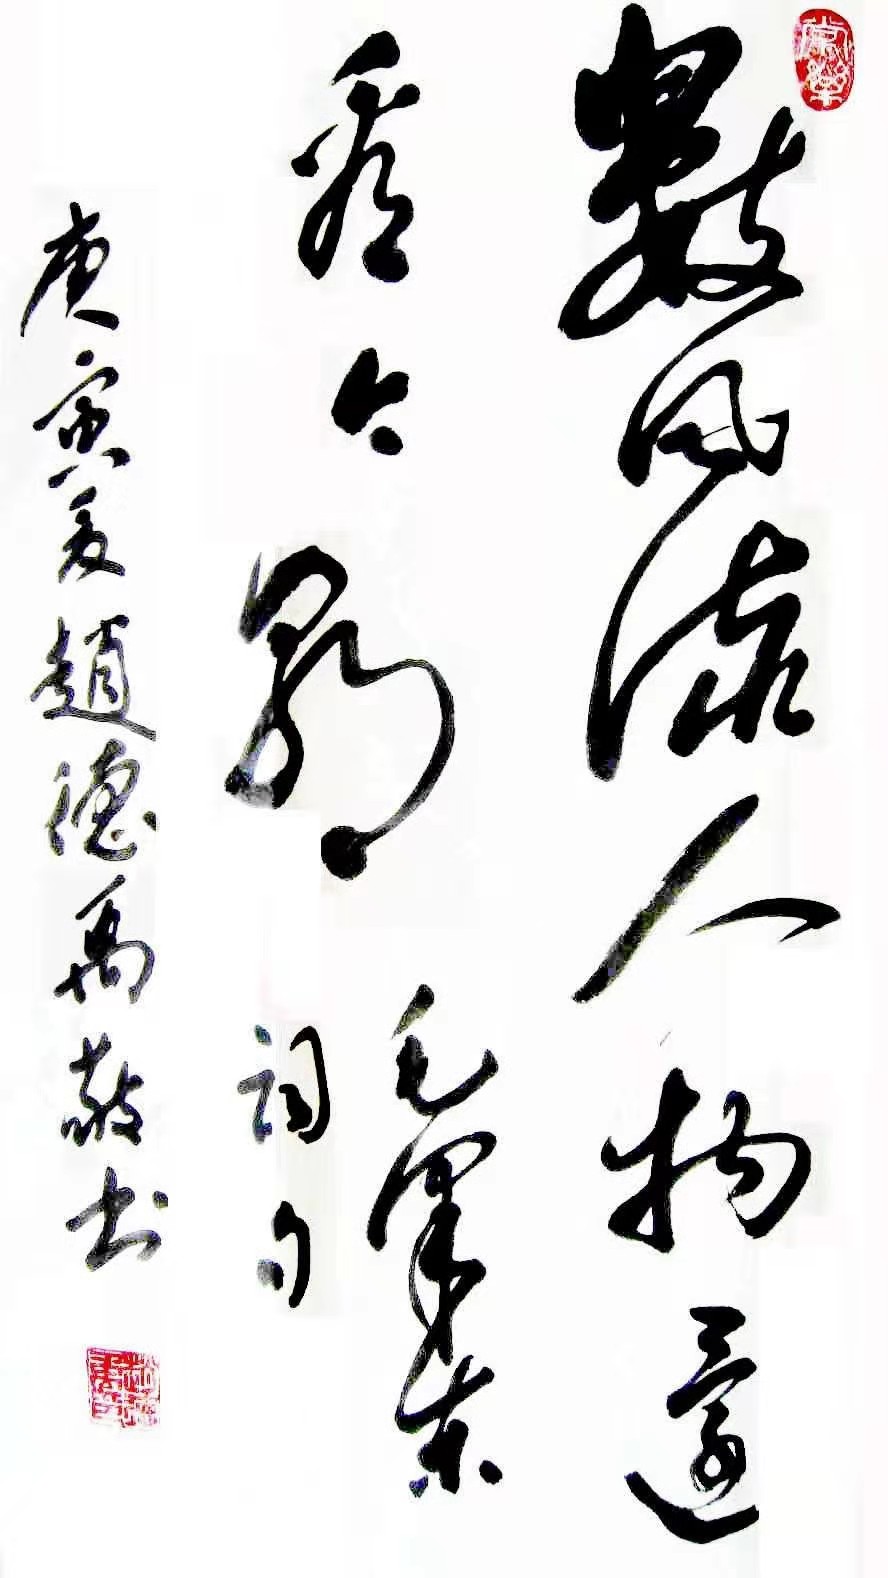 數風流人物還
看今朝
毛澤東
詞句
庚寅夏趙德禹敬書